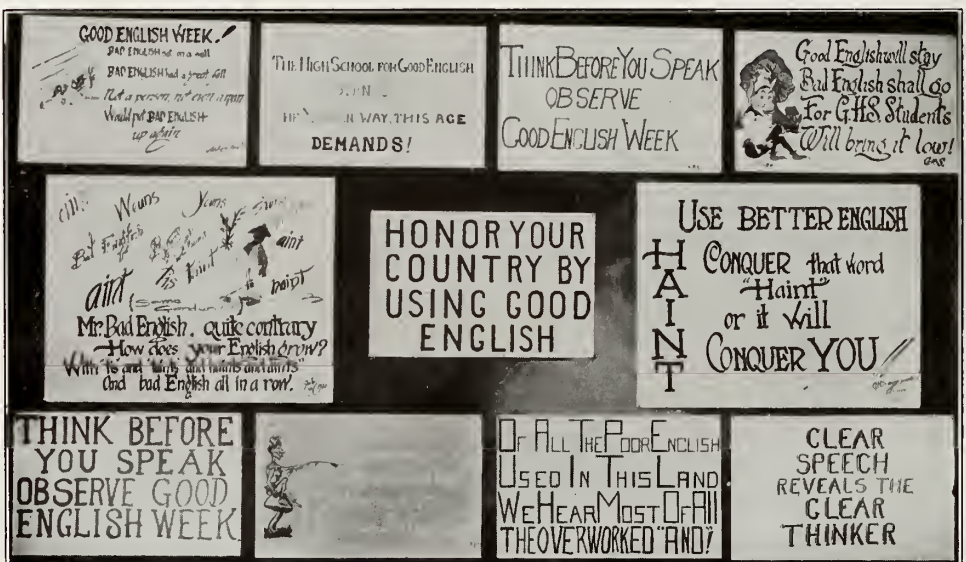 GOOD ENGLISH WEEK!
BAD ENGLISH sat on a wall
BAD ENGLISH had a great fall
Not a person, not even a man
Would put BAD ENGLISH
up again
THE HIGH SCHOOL FOR GOOD ENGLISH
WAY, THIS AGE
DEMANDS!
THINK BEFORE YOU SPEAK
OBSERVE
GOOD ENGLISH WEEK
Good English will stay
Bad English shall go
For G.H.S. Students
Will bring it low!
Wauns Yauns
aint
aint
haint
Mr. Bad English, quite contrary
How does your English grow?
With
And bad English all in a row.
HONOR YOUR
COUNTRY BY
USING GOOD
ENGLISH
USE BETTER ENGLISH
HAINT
CONQUER that word
"Haint"
or it will
CONQUER YOU
THINK BEFORE
YOU SPEAK
OBSERVE GOOD
ENGLISH WEEK
OF ALL THE POOR ENGLISH
USED IN THIS LAND
WE HEAR MOST OF ALL
THE OVERWORKED "AND"!
CLEAR
SPEECH
REVEALS THE
CLEAR
THINKER